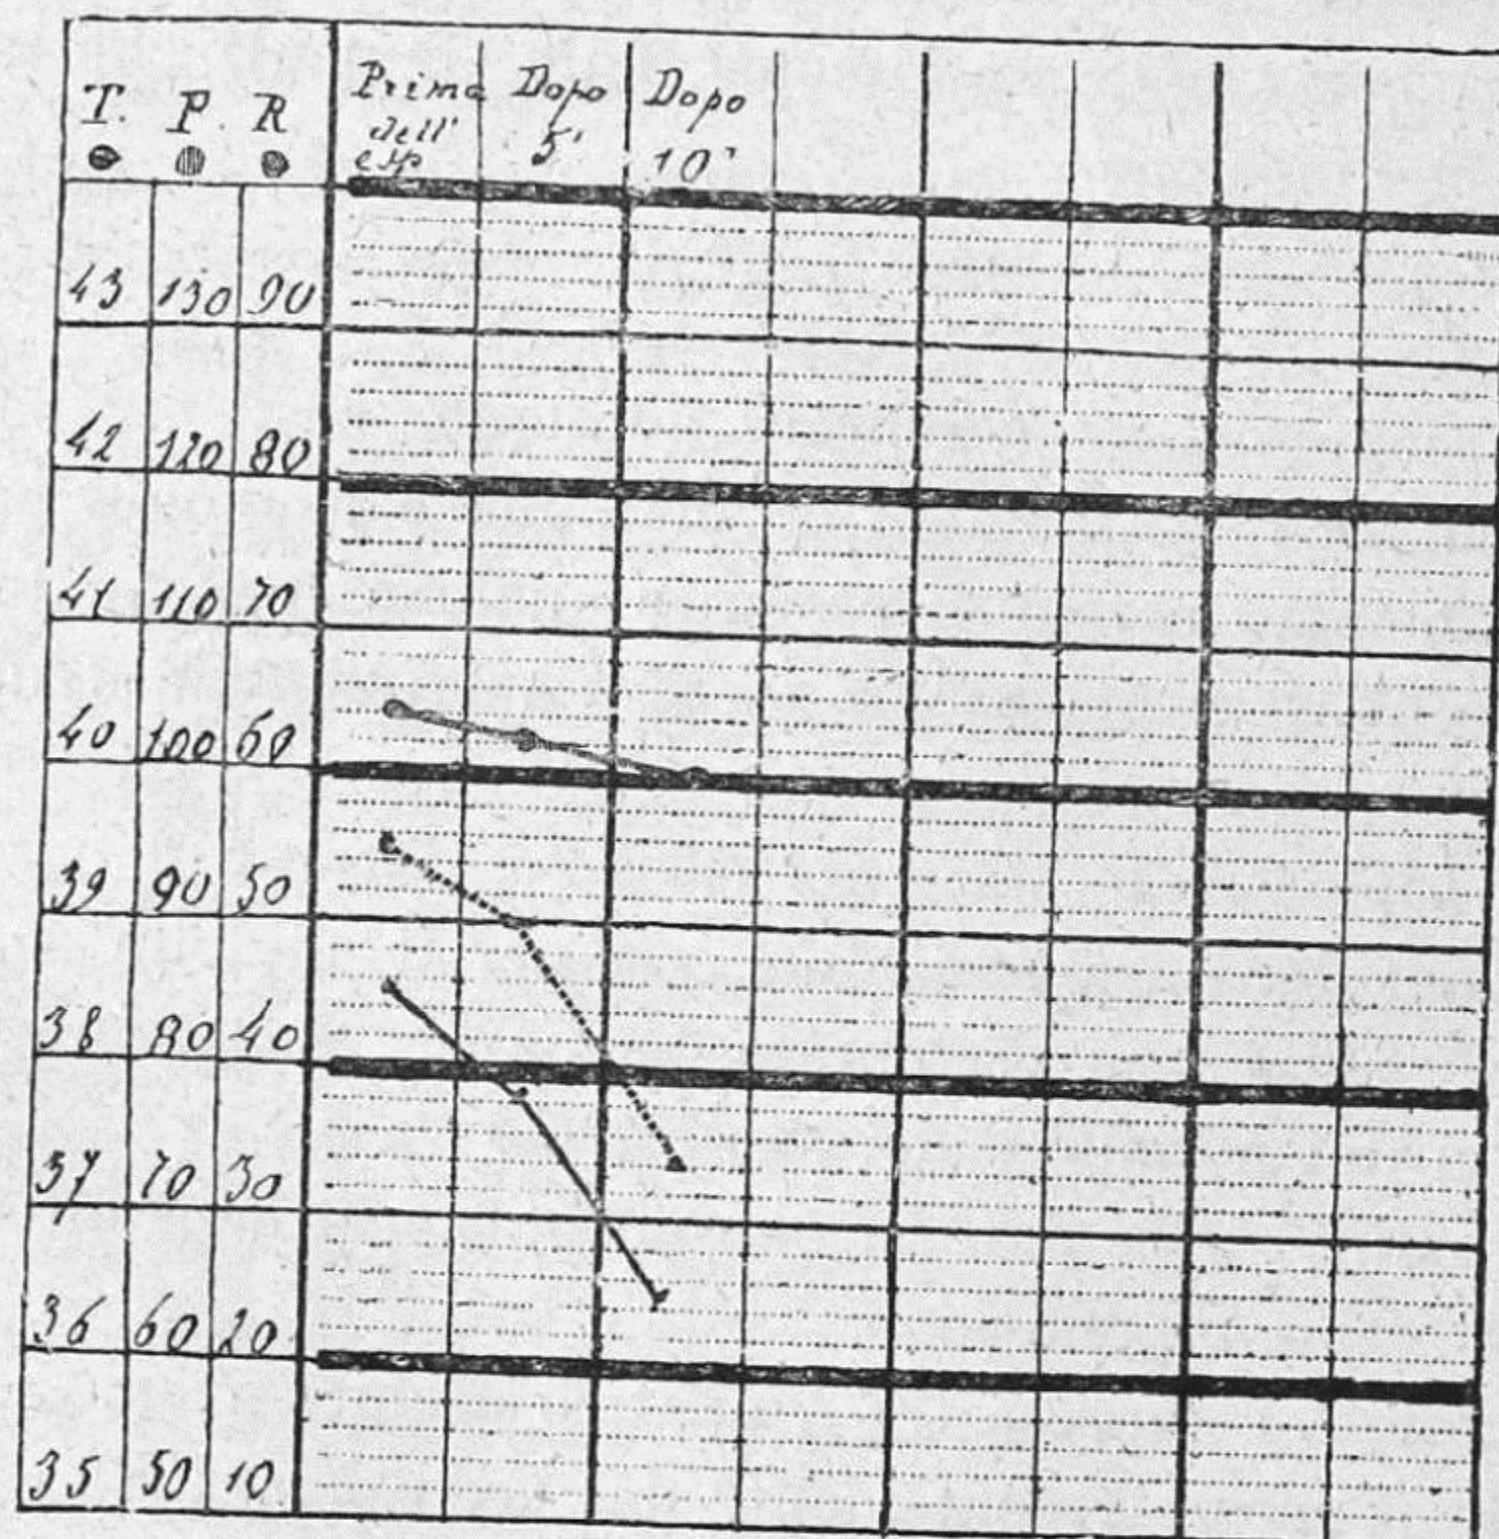 T. P. R
Prima dell' esp
Dopo 5'
Dopo 10'
43 130 90
42 120 80
41 110 70
40 100 60
39 90 50
38 80 40
37 70 30
36 60 20
35 50 10